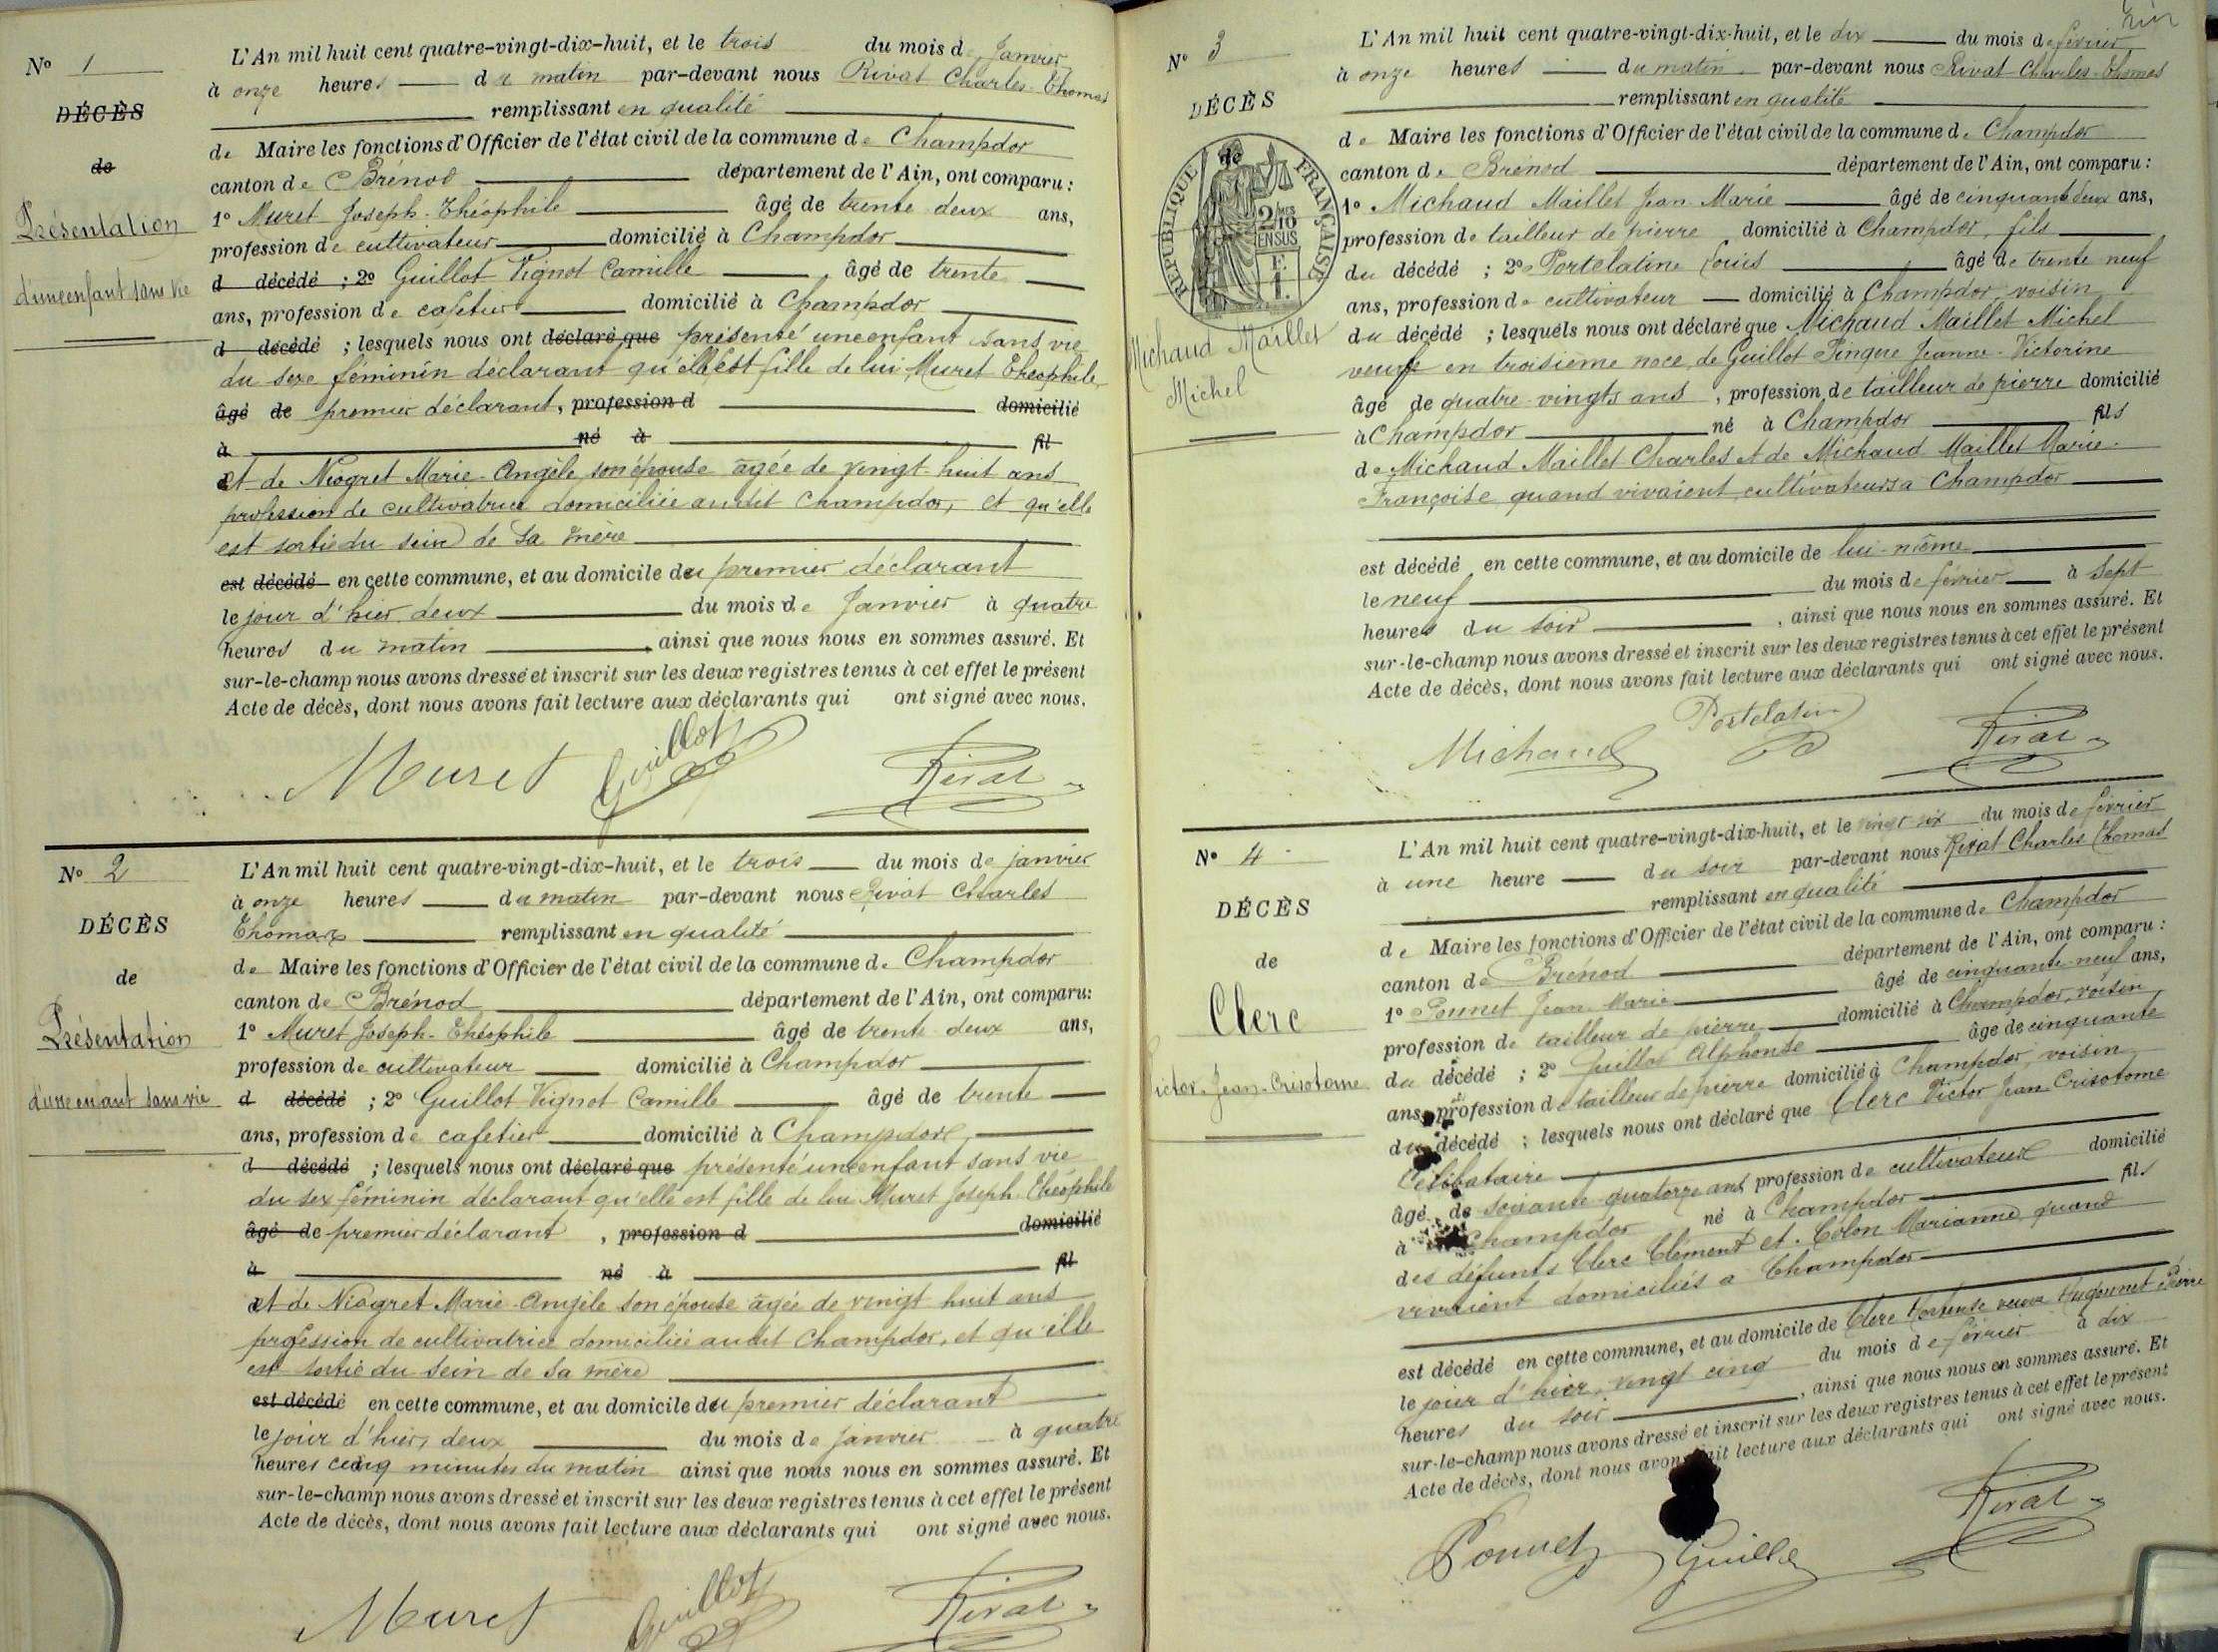 N° 1
DÉCÈS
de
Présentation
d'une enfant sans vie
L'An mil huit cent quatre-vingt-dix-huit, et le trois du mois de Janvier
à onze heures du matin par-devant nous Rivat Charles-Thomas
remplissant en qualité
de Maire les fonctions d'Officier de l'état civil de la commune de Champdor
canton de Brénod département de l'Ain, ont comparu :
1° Muret Joseph-Théophile âgé de trente deux ans,
profession de cultivateur domicilié à Champdor
d décédé ; 2° Guillot Vignot Camille, âgé de trente
ans, profession de cafetier domicilié à Champdor
d décédé ; lesquels nous ont déclaré que présenté une enfant sans vie
du sexe féminin déclarant qu'elle est fille de lui Muret Théophile
âgé de premier déclarant, profession d domicilié
à né à fil
et de Niogret Marie-Angèle son épouse âgée de vingt-huit ans
profession de cultivatrice domiciliée audit Champdor, et qu'elle
est sortie du sein de sa mère
est décédé en cette commune, et au domicile du premier déclarant
le jour d'hier deux du mois de Janvier à quatre
heures du matin, ainsi que nous nous en sommes assuré. Et
sur-le-champ nous avons dressé et inscrit sur les deux registres tenus à cet effet le présent
Acte de décès, dont nous avons fait lecture aux déclarants qui ont signé avec nous.
Muret Guillot Rivat
N° 2
DÉCÈS
de
Présentation
d'une enfant sans vie
L'An mil huit cent quatre-vingt-dix-huit, et le trois du mois de janvier
à onze heures du matin par-devant nous Rivat Charles
Thomas remplissant en qualité
de Maire les fonctions d'Officier de l'état civil de la commune de Champdor
canton de Brénod département de l'Ain, ont comparu:
1° Muret Joseph-Théophile âgé de trente deux ans,
profession de cultivateur domicilié à Champdor
d décédé ; 2° Guillot Vignot Camille âgé de trente
ans, profession de cafetier domicilié à Champdor
d décédé ; lesquels nous ont déclaré que présenté une enfant sans vie
du sex féminin déclarant qu'elle est fille de lui Muret Joseph Théophile
âgé de premier déclarant, profession d domicilié
à né à fil
et de Niogret Marie-Angèle son épouse âgée de vingt huit ans
profession de cultivatrice domiciliée audit Champdor, et qu'elle
est sortie du sein de sa mère
est décédé en cette commune, et au domicile du premier déclarant
le jour d'hier, deux du mois de janvier à quatre
heures cinq minutes du matin ainsi que nous nous en sommes assuré. Et
sur-le-champ nous avons dressé et inscrit sur les deux registres tenus à cet effet le présent
Acte de décès, dont nous avons fait lecture aux déclarants qui ont signé avec nous.
Muret Guillot Rivat
N° 3
DÉCÈS
de
RÉPUBLIQUE FRANÇAISE
2/10
EN SUS
Michaud Maillet
Michel
L'An mil huit cent quatre-vingt-dix-huit, et le dix du mois de février
à onze heures du matin par-devant nous Rivat Charles-Thomas
remplissant en qualité
de Maire les fonctions d'Officier de l'état civil de la commune de Champdor
canton de Brénod département de l'Ain, ont comparu :
1° Michaud Maillet Jean Marie âgé de cinquante deux ans,
profession de tailleur de pierre domicilié à Champdor, fils
du décédé ; 2° Portelatine Louis âgé de trente neuf
ans, profession de cultivateur domicilié à Champdor, voisin
du décédé ; lesquels nous ont déclaré que Michaud Maillet Michel
veuf en troisième noce de Guillot Pingue Jeanne-Victorine
âgé de quatre-vingts ans, profession de tailleur de pierre domicilié
à Champdor né à Champdor fils
de Michaud Maillet Charles et de Michaud Maillet Marie-
Françoise quand vivaient cultivateurs à Champdor
est décédé en cette commune, et au domicile de lui-même
le neuf du mois de février à sept
heures du soir, ainsi que nous nous en sommes assuré. Et
sur-le-champ nous avons dressé et inscrit sur les deux registres tenus à cet effet le présent
Acte de décès, dont nous avons fait lecture aux déclarants qui ont signé avec nous.
Michaud Portelatine Rivat
N° 4
DÉCÈS
de
Clerc
Victor-Jean-Crisotome
L'An mil huit cent quatre-vingt-dix-huit, et le vingt six du mois de février
à une heure du soir par-devant nous Rivat Charles Thomas
remplissant en qualité
de Maire les fonctions d'Officier de l'état civil de la commune de Champdor
canton de Brénod département de l'Ain, ont comparu :
1° Ponnet Jean Marie âgé de cinquante-neuf ans,
profession de tailleur de pierre domicilié à Champdor, voisin
du décédé ; 2° Guillot Alphonse âgé de cinquante
ans, profession de tailleur de pierre domicilié à Champdor, voisin
du décédé ; lesquels nous ont déclaré que Clerc Victor Jean-Crisotome
Célibataire
âgé de soixante quatorze ans profession de cultivateur domicilié
à Champdor né à Champdor fils
des défunts Clerc Clément et Colon Marianne, quand
vivaient domiciliés à Champdor
est décédé en cette commune, et au domicile de Clerc Hortense veuve Hugonnet Pierre
le jour d'hier, vingt cinq du mois de février à dix
heures du soir, ainsi que nous nous en sommes assuré. Et
sur-le-champ nous avons dressé et inscrit sur les deux registres tenus à cet effet le présent
Acte de décès, dont nous avons fait lecture aux déclarants qui ont signé avec nous.
Ponnet Guillot Rivat